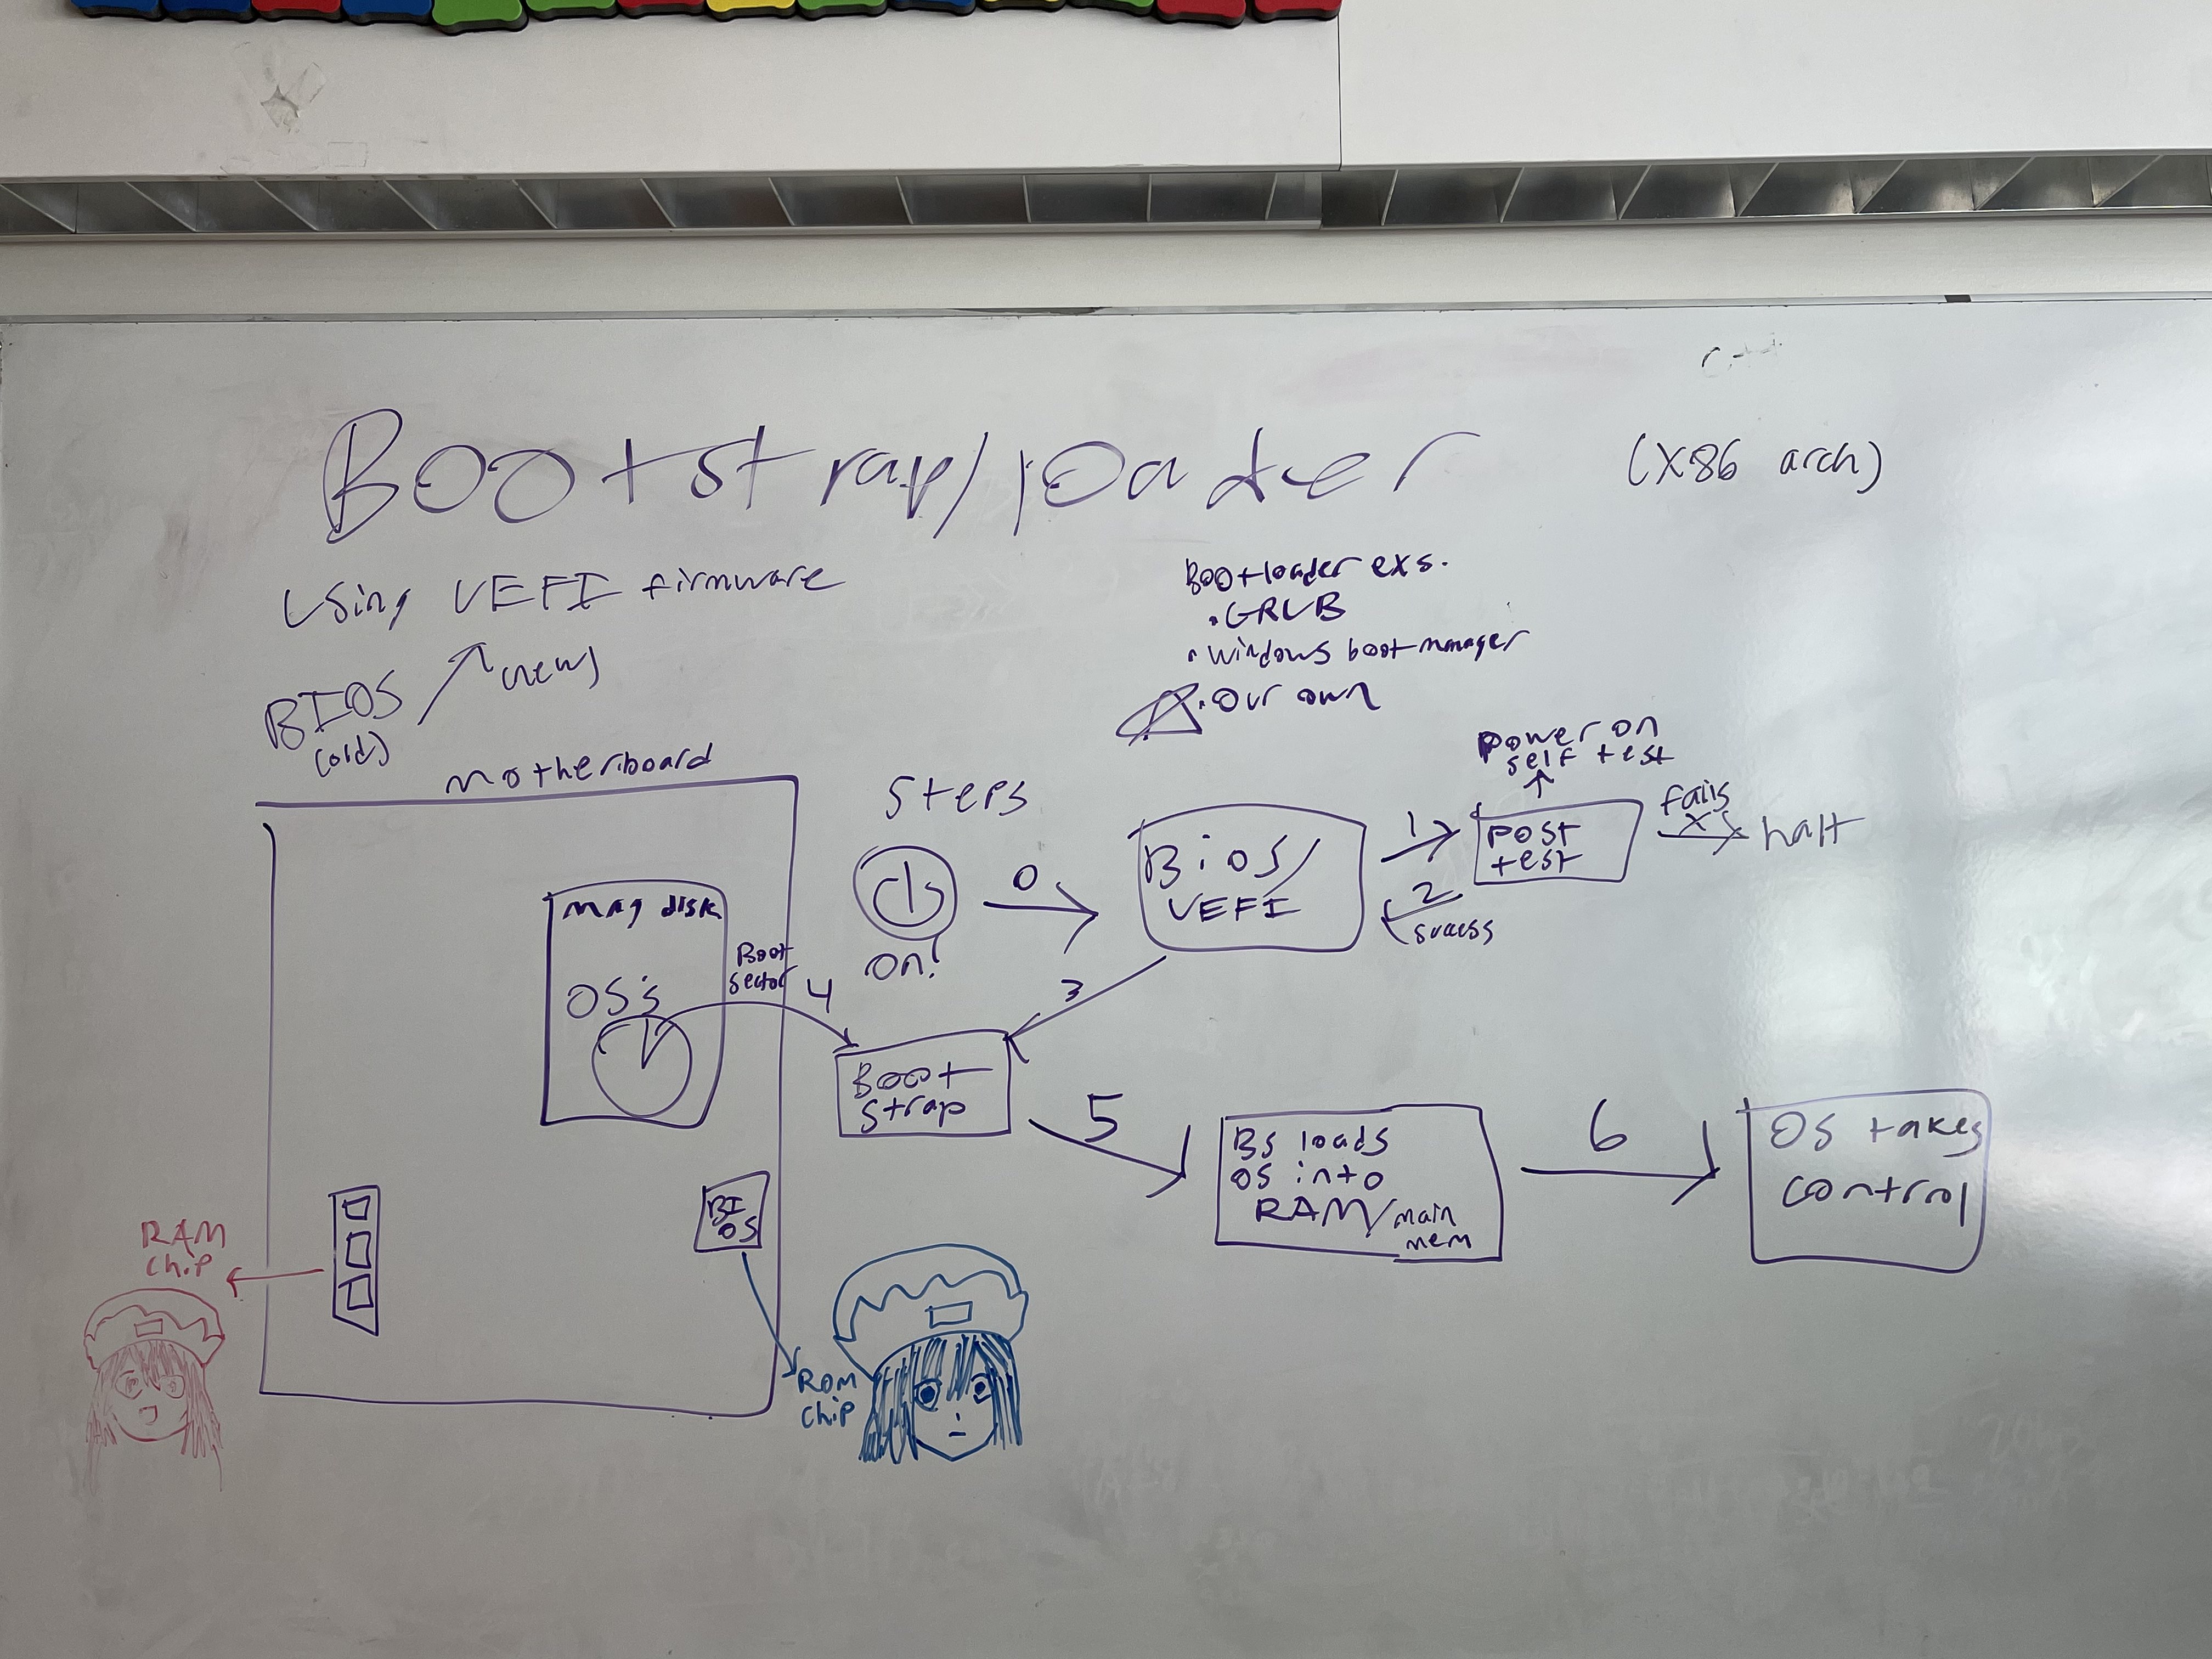 Bootstrap/loader
(X86 arch)
Using UEFI firmware
(new)
BIOS
(old)
Bootloader exs.
• GRUB
• Windows boot manager
• Our own
Motherboard
Mag disk
OS's
Boot
sector
4
BI
OS
RAM
chip
ROM
chip
Steps
On!
0
Bios/
UEFI
1
Power on
self test
POST
test
fails
X
halt
2
success
3
Boot
strap
5
BS loads
OS into
RAM/main
mem
6
OS takes
control